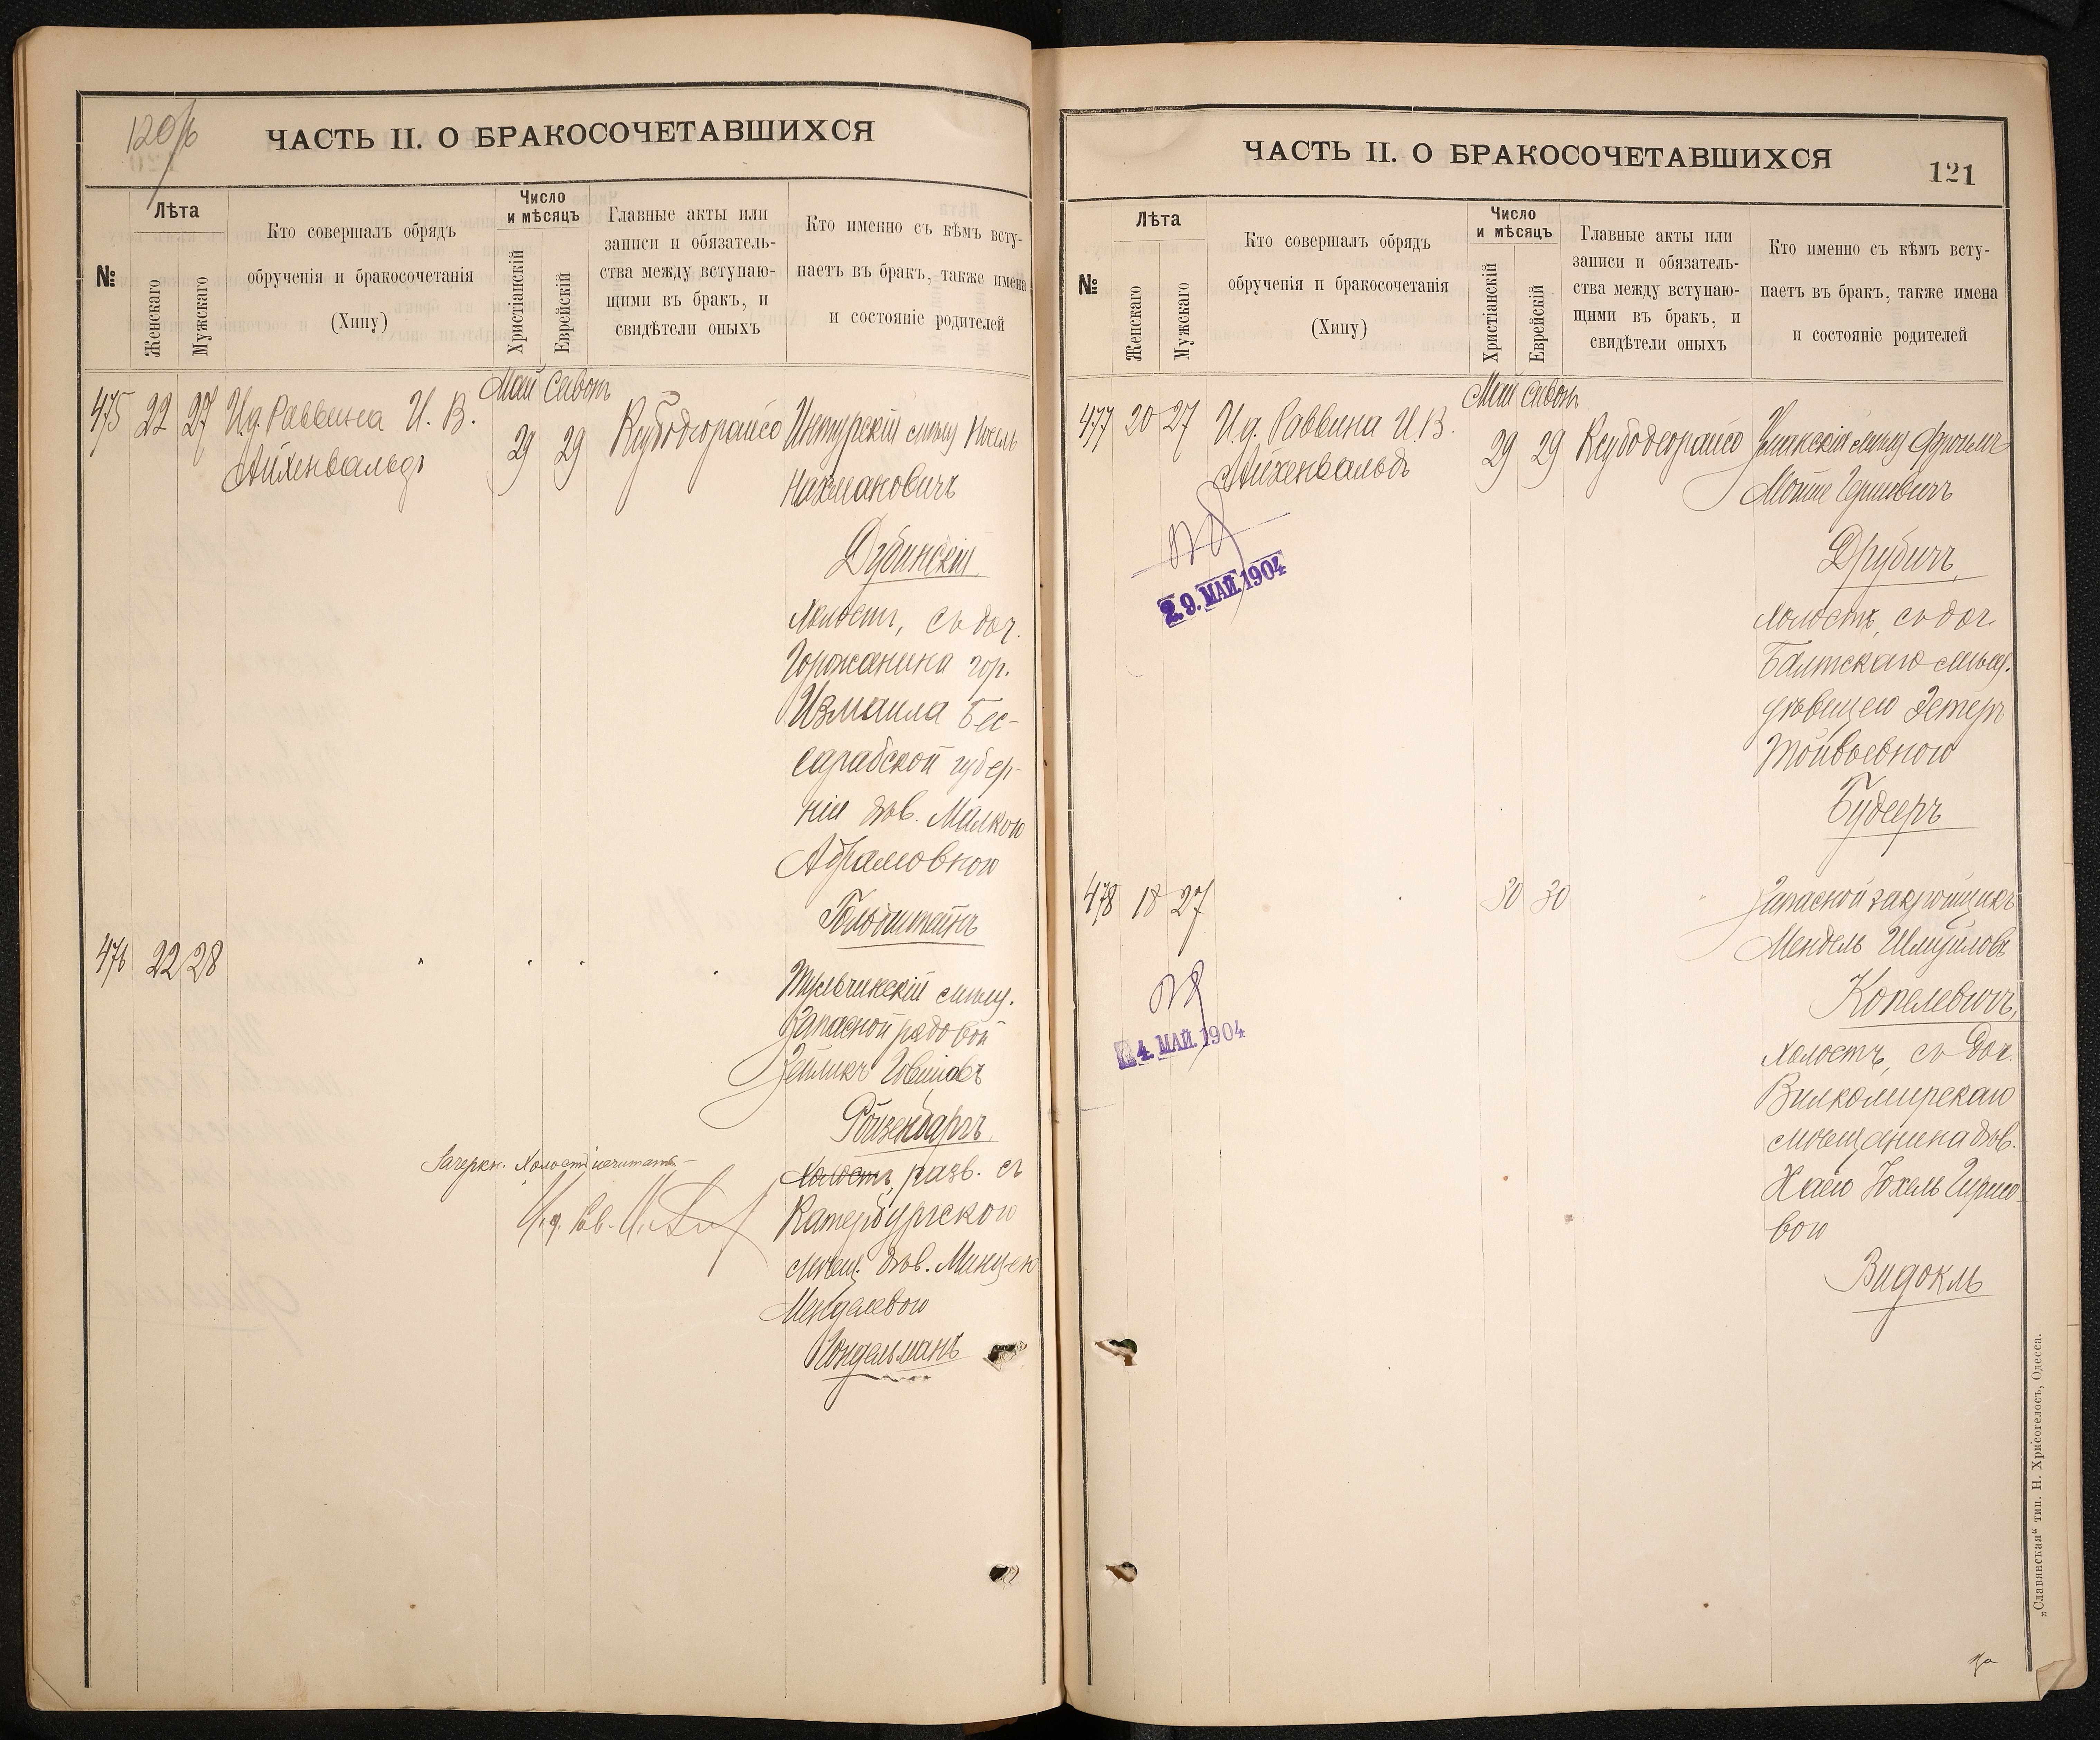 120/б
ЧАСТЬ II. О БРАКОСОЧЕТАВШИХСЯ
№
Лѣта
Женскаго
Мужскаго
Кто совершалъ обрядъ
обрученія и бракосочетанія
(Хипу)
Число
и мѣсяцъ
Христіанскій
Еврейскій
Главные акты или
записи и обязатель-
ства между вступаю-
щими въ бракъ, и
свидѣтели оныхъ
Кто именно съ кѣмъ всту-
паетъ въ бракъ, также имена
и состояніе родителей
Май Сивонъ
475 22 27 И.д. Раввина И. В.
Айхенвальдъ
29 29
Ксубодеорайсо
мѣщ
Нахмановичъ
Дубинскій
холостъ, съ доч.
Горожанина гор.
Измаила Бес-
сарабской губер-
ніи дѣв. Малкою
Абрамовною
Гольдштейнъ
476 22 28
Тульчинскій мѣщ.
Запасной рядовой
Зейликъ
Ройзенбаргъ
Зачеркн. Холостъ нечитать
И.д. Рав.
холостъ, разв. съ
Катербургского
мѣщ. дѣв.
Менделевою
Гондельманъ
ЧАСТЬ II. О БРАКОСОЧЕТАВШИХСЯ
121
№
Лѣта
Женскаго
Мужскаго
Кто совершалъ обрядъ
обрученія и бракосочетанія
(Хипу)
Число
и мѣсяцъ
Христіанскій
Еврейскій
Главные акты или
записи и обязатель-
ства между вступаю-
щими въ бракъ, и
свидѣтели оныхъ
Кто именно съ кѣмъ всту-
паетъ въ бракъ, также имена
и состояніе родителей
Май Сивонъ
477 20 27 И.д. Раввина И.В.
Айхенвальдъ
29 29
Ксубодеорайсо
мѣщ Фроимъ
Мотие Гершовичъ
29. МАЙ. 1904
Друбичъ
холостъ, съ доч.
Балтскаго мѣщ.
дѣвицею Эстеръ
Тойвьевною
Будееръ
478 18 27
30 30
Запасной закройщикъ
Мендель Шмуиловъ
Копелевичъ,
4. МАЙ. 1904
холостъ, съ доч.
Вилкомирскаго
мѣщанина дѣв.
Хаею Гиршо-
вою
Видокль
„Славянская“ тип. Н. Хрисогелосъ, Одесса.